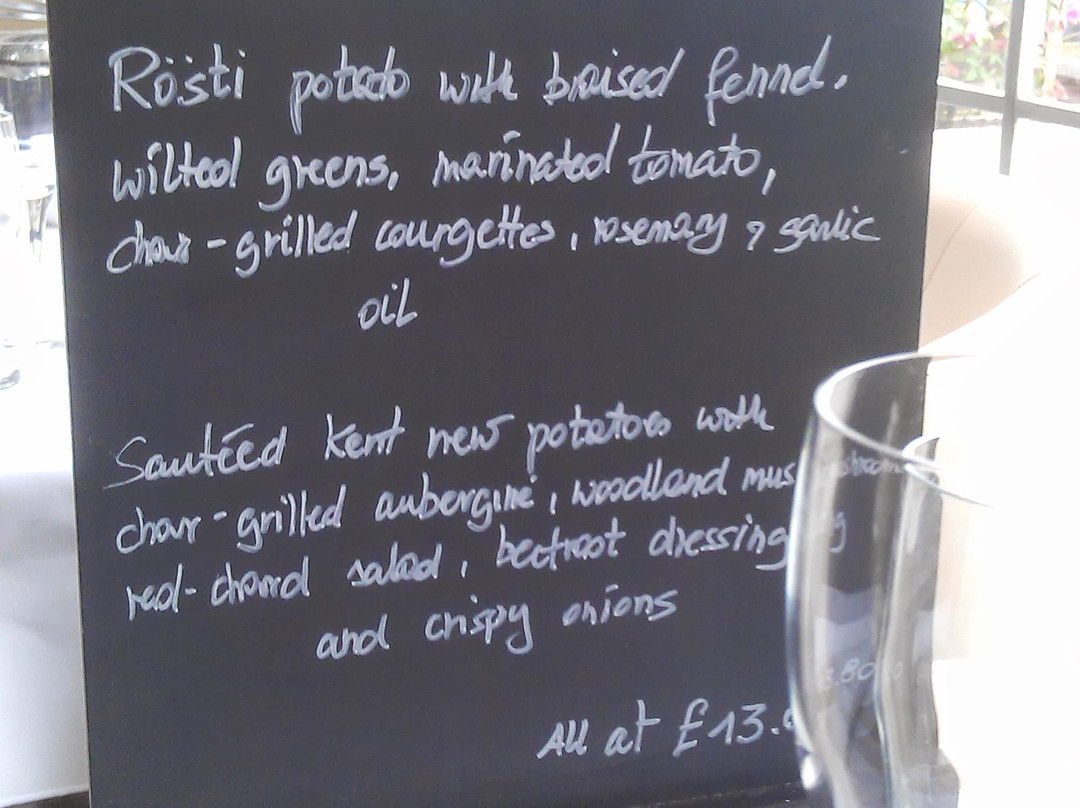 Rösti potato with braised fennel.
wilted greens, marinated tomato,
char-grilled courgettes, rosemary & garlic
oil
Sautéed Kent new potatoes with
char-grilled aubergine, woodland mushrooms
red-chard salad, beetroot dressing
and crispy onions
All at £13.